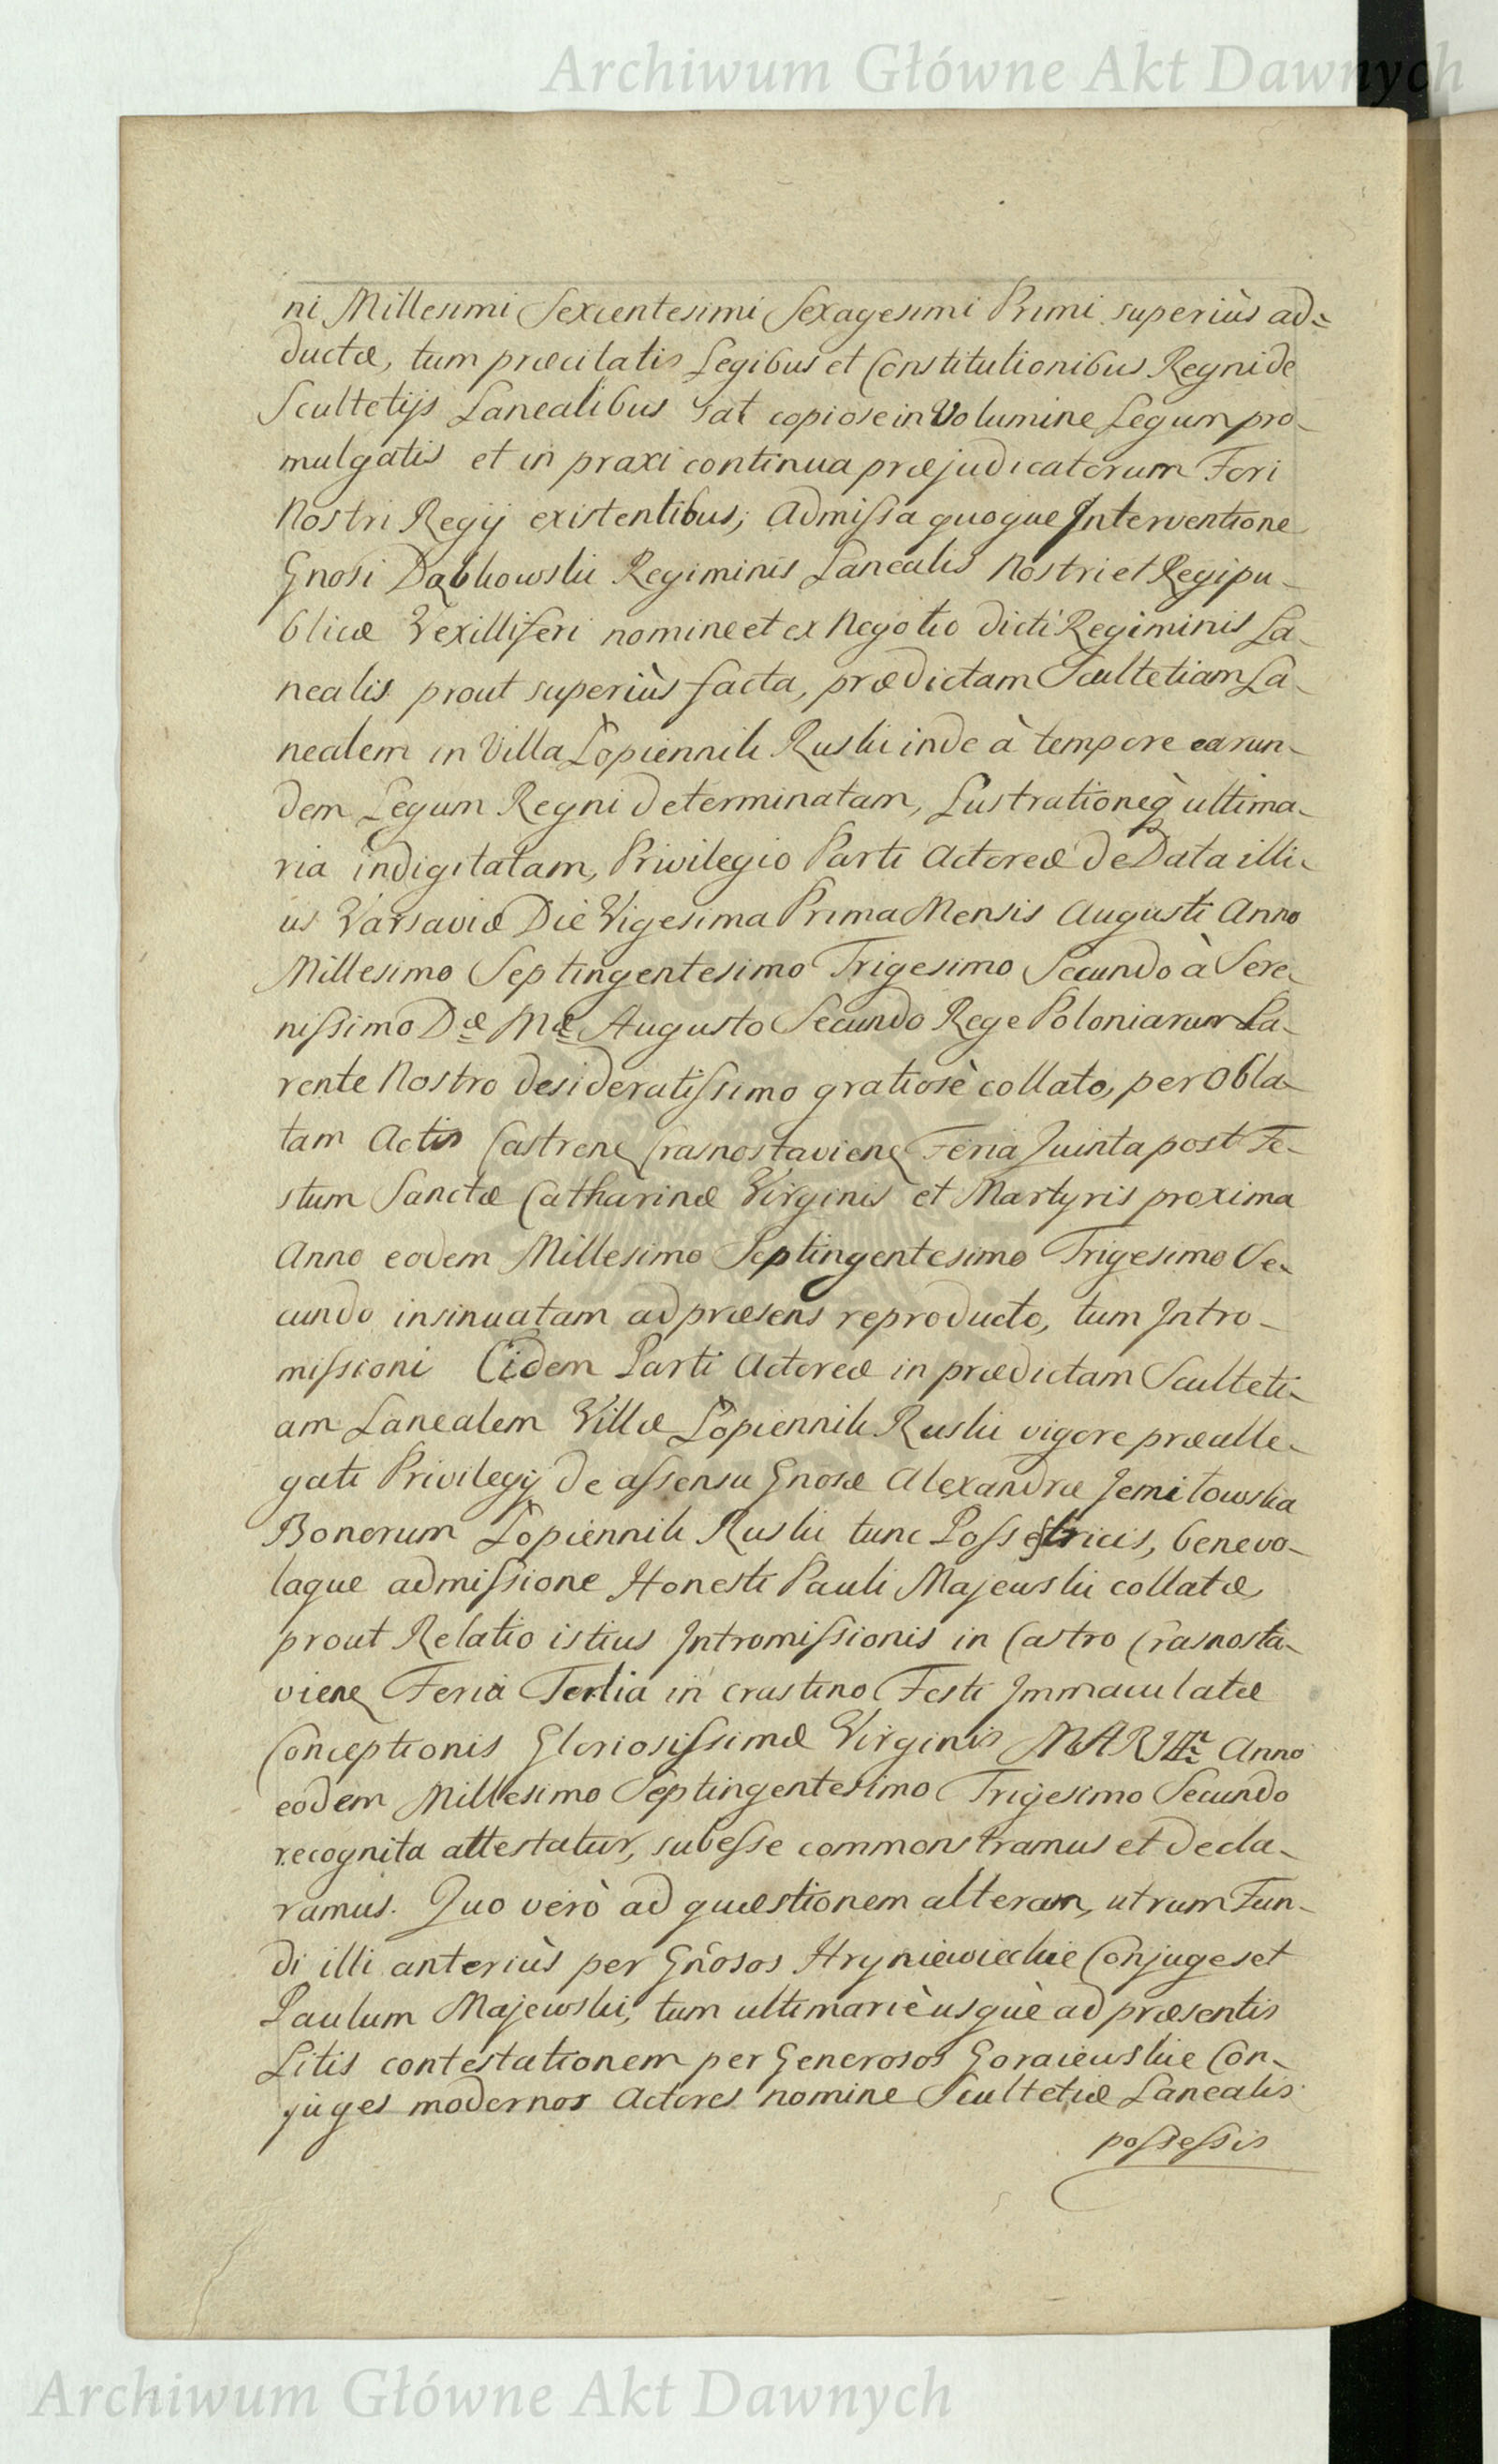 Archiwum Główne Akt Dawnych
ni Millesimi Sexcentesimi Sexagesimi Primi superiùs ad=
ductæ, tum præcitatis Legibus et Constitutionibus Regni de
Scultetijs Lanealibus sat copiose in Volumine Legum pro-
mulgatis et in praxi continua præjudicatorum Fori
Nostri Regij existentibus; Admissa quoque Interventione
Gnosi Dąbkowski Regiminis Lanealis Nostri et Reipu-
blicæ Vexilliferi nomine et ex Negotio dicti Regiminis La-
nealis prout superiùs facta, prædictam Scultetiam La-
nealem in Villa Łopiennik Ruski inde à tempore earun-
dem Legum Regni determinatam, Lustrationeq̀ ultima-
ria indigitatam, Privilegio Parti Actoreæ de Data illi-
us Varsaviæ Die Vigesima Prima Mensis Augusti Anno
Millesimo Septingentesimo Trigesimo Secundo à Sere-
nissimo Dæ Mæ Augusto Secundo Rege Poloniarum Pa-
rente Nostro desideratissimo gratiosè collato, per Obla-
tam Actis Castren Crasnostavien Feria Quinta post Fe-
stum Sanctæ Catharinæ Virginis et Martyris proxima
Anno eodem Millesimo Septingentesimo Trigesimo Se-
cundo insinuatam ad præsens reproducto, tum Intro-
missioni Eidem Parti Actoreæ in prædictam Sculteti-
am Lanealem Villæ Łopiennik Ruski vigore præalle-
gati Privilegij de assensu Gnosæ Alexandræ Jemiłowska
Bonorum Łopiennik Ruski tunc Possestricis, benevo-
laque admissione Honesti Pauli Majewski collatæ,
prout Relatio istius Intromissionis in Castro Crasnosta-
vien Feria Tertia in crastino Festi Immaculatæ
Conceptionis Gloriosissimæ Virginis MARIÆ Anno
eodem Millesimo Septingentesimo Trigesimo Secundo
recognita attestatur, subesse commonstramus et decla-
ramus. Quo verò ad quæstionem alteram, utrum Fun-
di illi anteriùs per Gñosos Hryniewieckie Conjuges et
Paulum Majewski, tum ultimariè usquè ad præsentis
Litis contestationem per Generosos Goraiewskie Con-
juges modernos Actores nomine Scultetiæ Lanealis
possessis
Archiwum Główne Akt Dawnych